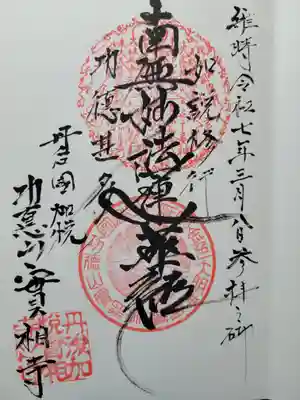 維時令和七年三月八日参拝之砌
如説修行
南無妙法蓮華経
功徳甚多
丹后國加悦
山實相寺